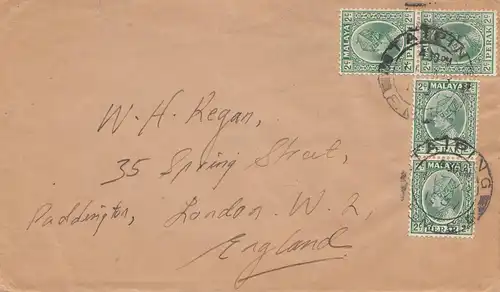 MALAYA
PERAK
MALAYA
PERAK
MALAYA
PERAK
MALAYA
PERAK
TAIPING
TAIPING
W. H. Regan,
35 Spring Street,
Paddington, London. W. 2,
England